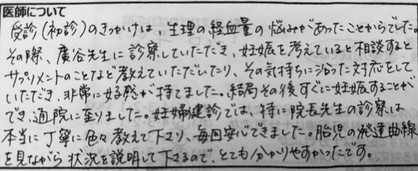 医師について
受診(初診)のきっかけは、生理の経血量の悩みがあったことからでした。
その際、廣谷先生に診察していただき、妊娠を考えていると相談すると
サプリメントのことなど教えていただいたり、その気持ちに沿った対応をして
いただき、非常に好感が持てました。結局その後すぐに妊娠することが
でき、通院に至りました。妊婦健診では、特に院長先生の診察は
本当に丁寧に色々教えて下さり、毎回安心できました。胎児の発達曲線
を見ながら状況を説明して下さるので、とても分かりやすかったです。